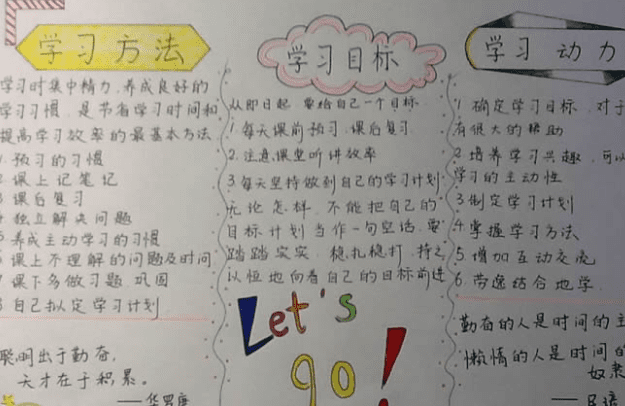 学习方法
学习时集中精力,养成良好的
学习习惯,是节省学习时间和
提高学习效率的最基本方法
1.预习的习惯
2.课上记笔记
3.课后复习
4.独立解决问题
5.养成主动学习的习惯
6.课上不理解的问题及时问
7.课下多做习题,巩固
8.自己拟定学习计划
聪明出于勤奋,
天才在于积累。
——华罗庚
学习目标
从即日起,要给自己一个目标
1.每天课前预习.课后复习
2.注意课堂听讲效率
3.每天坚持做到自己的学习计划
无论怎样,不能把自己的
目标计划当作一句空话,要
踏踏实实,稳扎稳打,持之
以恒地向着自己的目标前进
Let's
go!
学习动力
1.确定学习目标,对于
有很大的帮助
2.培养学习兴趣,可以
学习的主动性
3.制定学习计划
4.掌握学习方法
5.增加互动交流
6.劳逸结合地学.
勤奋的人是时间的主
懒惰的人是时间的
奴隶